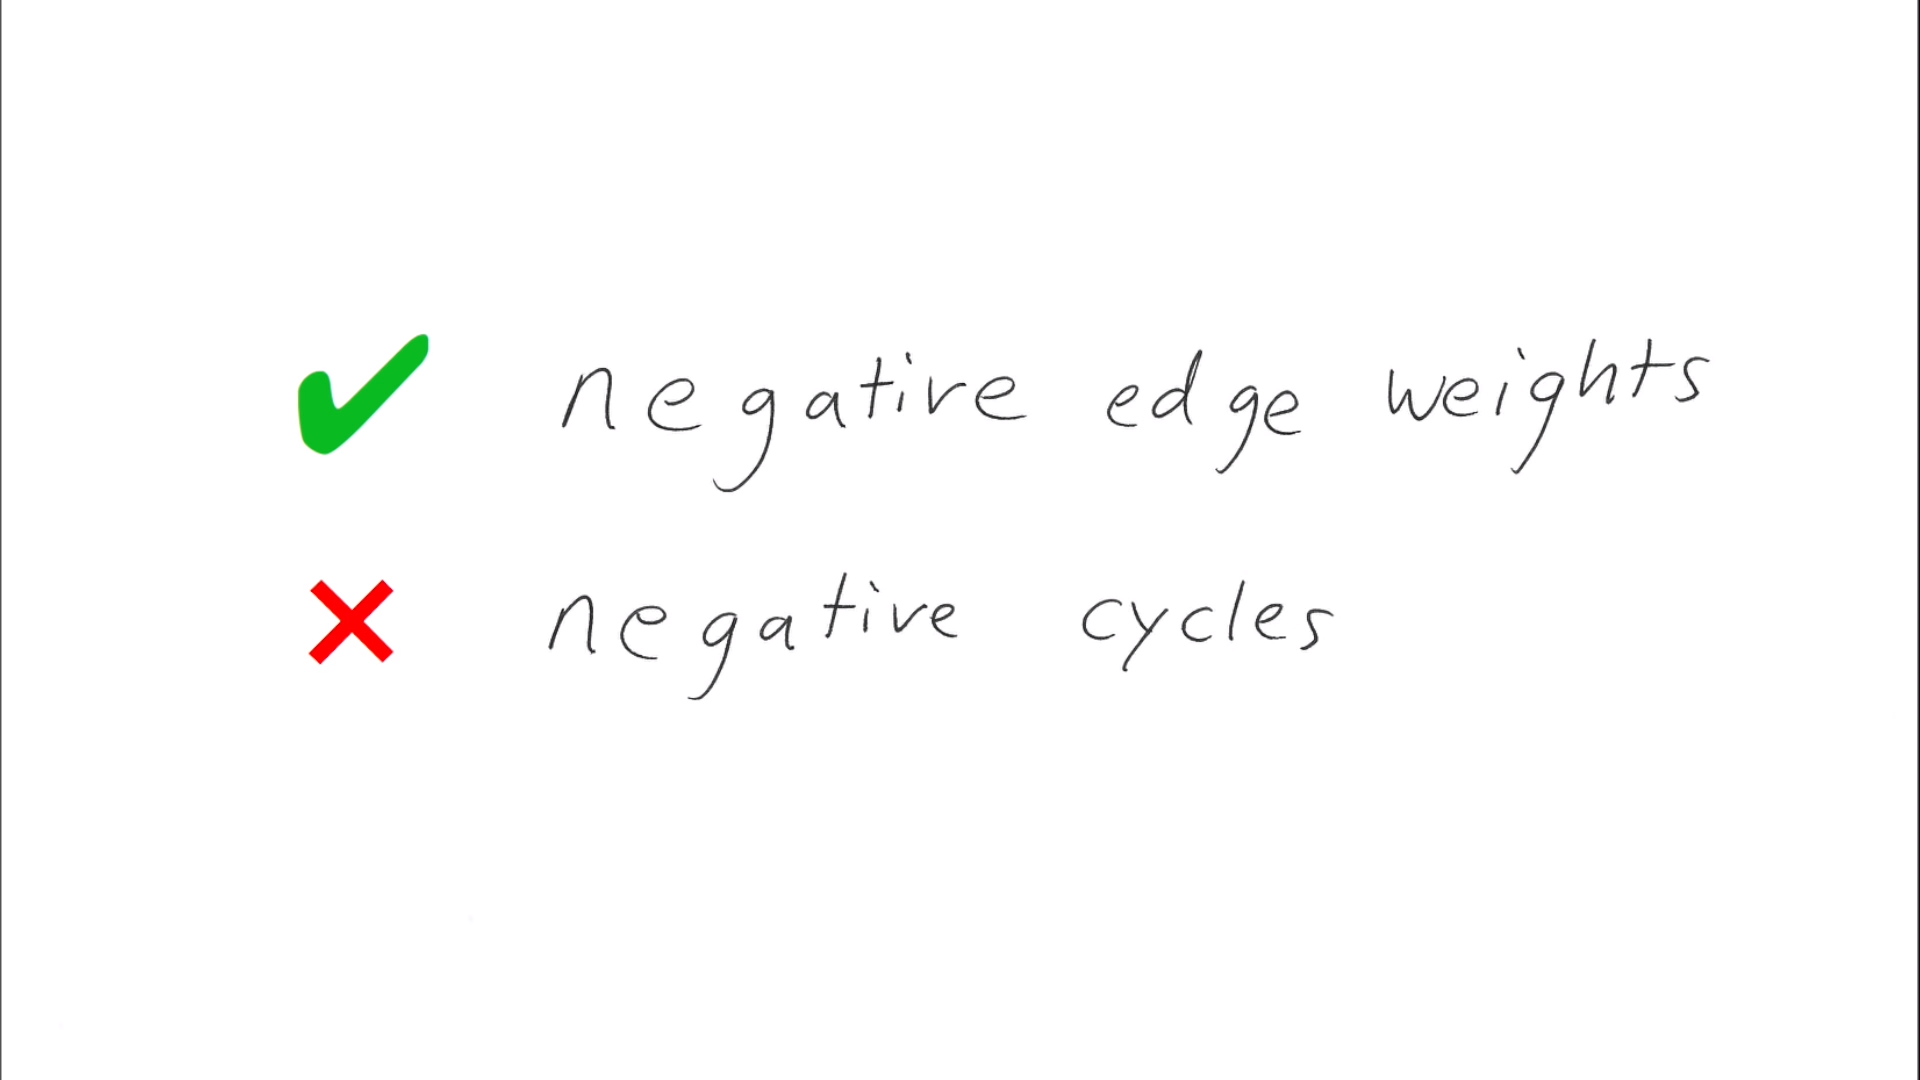 negative edge weights
negative cycles